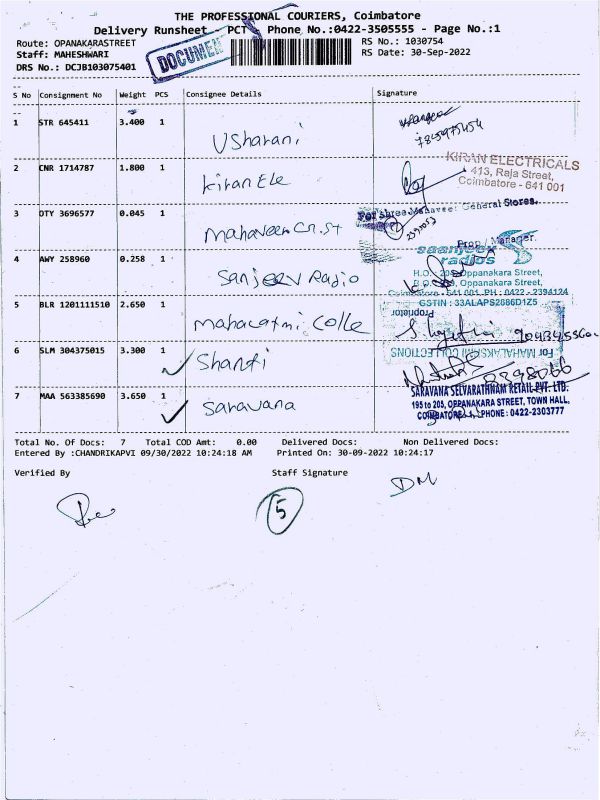 THE PROFESSIONAL COURIERS, Coimbatore
Delivery Runsheet PCT Phone No.:0422-3505555 - Page No.:1
Route: OPANAKARASTREET
RS No.: 1030754
Staff: MAHESHWARI
RS Date: 30-Sep-2022
DRS No.: DCJB103075401
DOCUMEN
S No Consignment No Weight PCS Consignee Details Signature
1 STR 645411 3.400 1 Usharani
2 CNR 1714787 1.800 1 Kiran Ele
KIRAN ELECTRICALS
413, Raja Street,
Coimbatore - 641 001
3 OTY 3696577 0.045 1 Mahaveer Cn.st
For Shree Mahaveer General Stores.
Prop / Manager.
4 AWY 258960 0.258 1 Sanjeev Radio
saanjeev
radios
H.O.: Oppanakara Street,
Oppanakara Street,
Coimbatore - 641 001. PH : 0422 - 2394124
GSTIN : 33ALAPS2886D1Z5
5 BLR 1201111510 2.650 1 Mahalatmi Colle
Proprietor
For MAHALAKSHMI COLLECTIONS
6 SLM 304375015 3.300 1 Shanti
7 MAA 563385690 3.650 1 Saravana
SARAVANA SELVARATHNAM RETAIL PVT. LTD.
195 to 205, OPPANAKARA STREET, TOWN HALL,
COIMBATORE PHONE: 0422-2303777
Total No. Of Docs: 7 Total COD Amt: 0.00 Delivered Docs: Non Delivered Docs:
Entered By :CHANDRIKAPVI 09/30/2022 10:24:18 AM Printed On: 30-09-2022 10:24:17
Verified By Staff Signature
5
DM